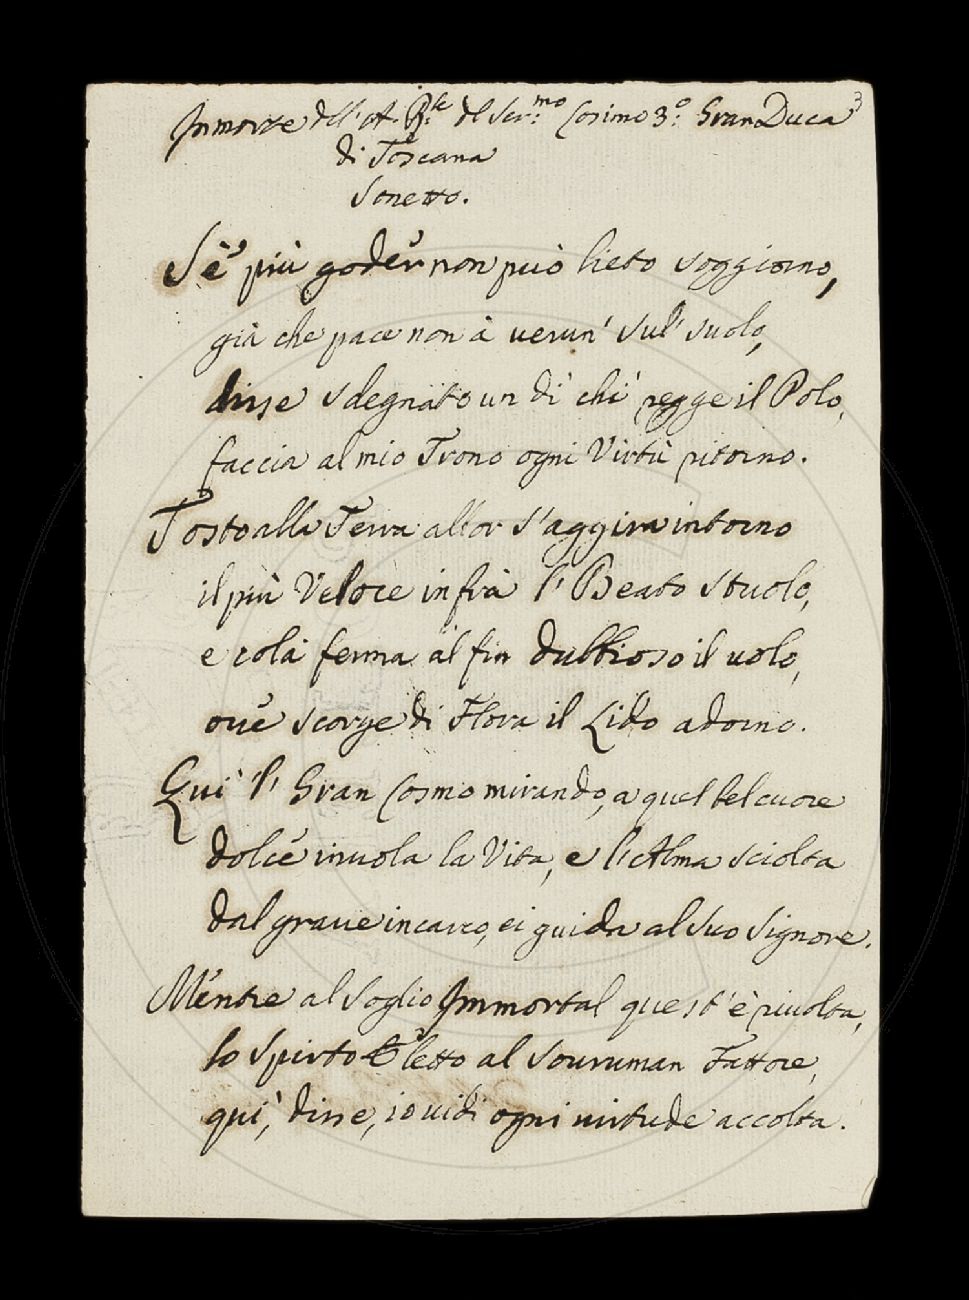 In morte dell'A. R.le del Ser.mo Cosimo 3.o Gran Duca 3
di Toscana
Sonetto.
Sè più goder non può lieto soggiorno,
già che pace non à verun' sul' suolo,
disse sdegnato un dì chi regge il Polo,
faccia al mio Trono ogni Virtù ritorno.
Tosto alla Terra allor s'aggira intorno
il più Veloce infrà l'Beato stuolo,
e colà ferma al fin dubbioso il uolo,
oue scorge di Flora il Lido adorno.
Qui l' Gran Cosmo mirando, a quel bel cuore
dolce inuola la Vita, e l'Alma sciolta
dal graue incarco, ei guida al suo Signore.
Mentre al soglio Immortal quest'è riuolta,
lo spirto Eletto al Souruman Fattore,
qui, disse, io uidi ogni uirtude accolta.